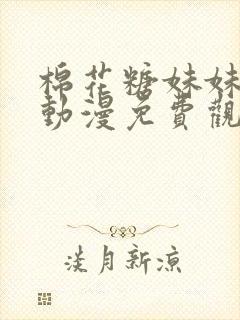 棉花糖妹妹
動漫免費觀
淡月新涼